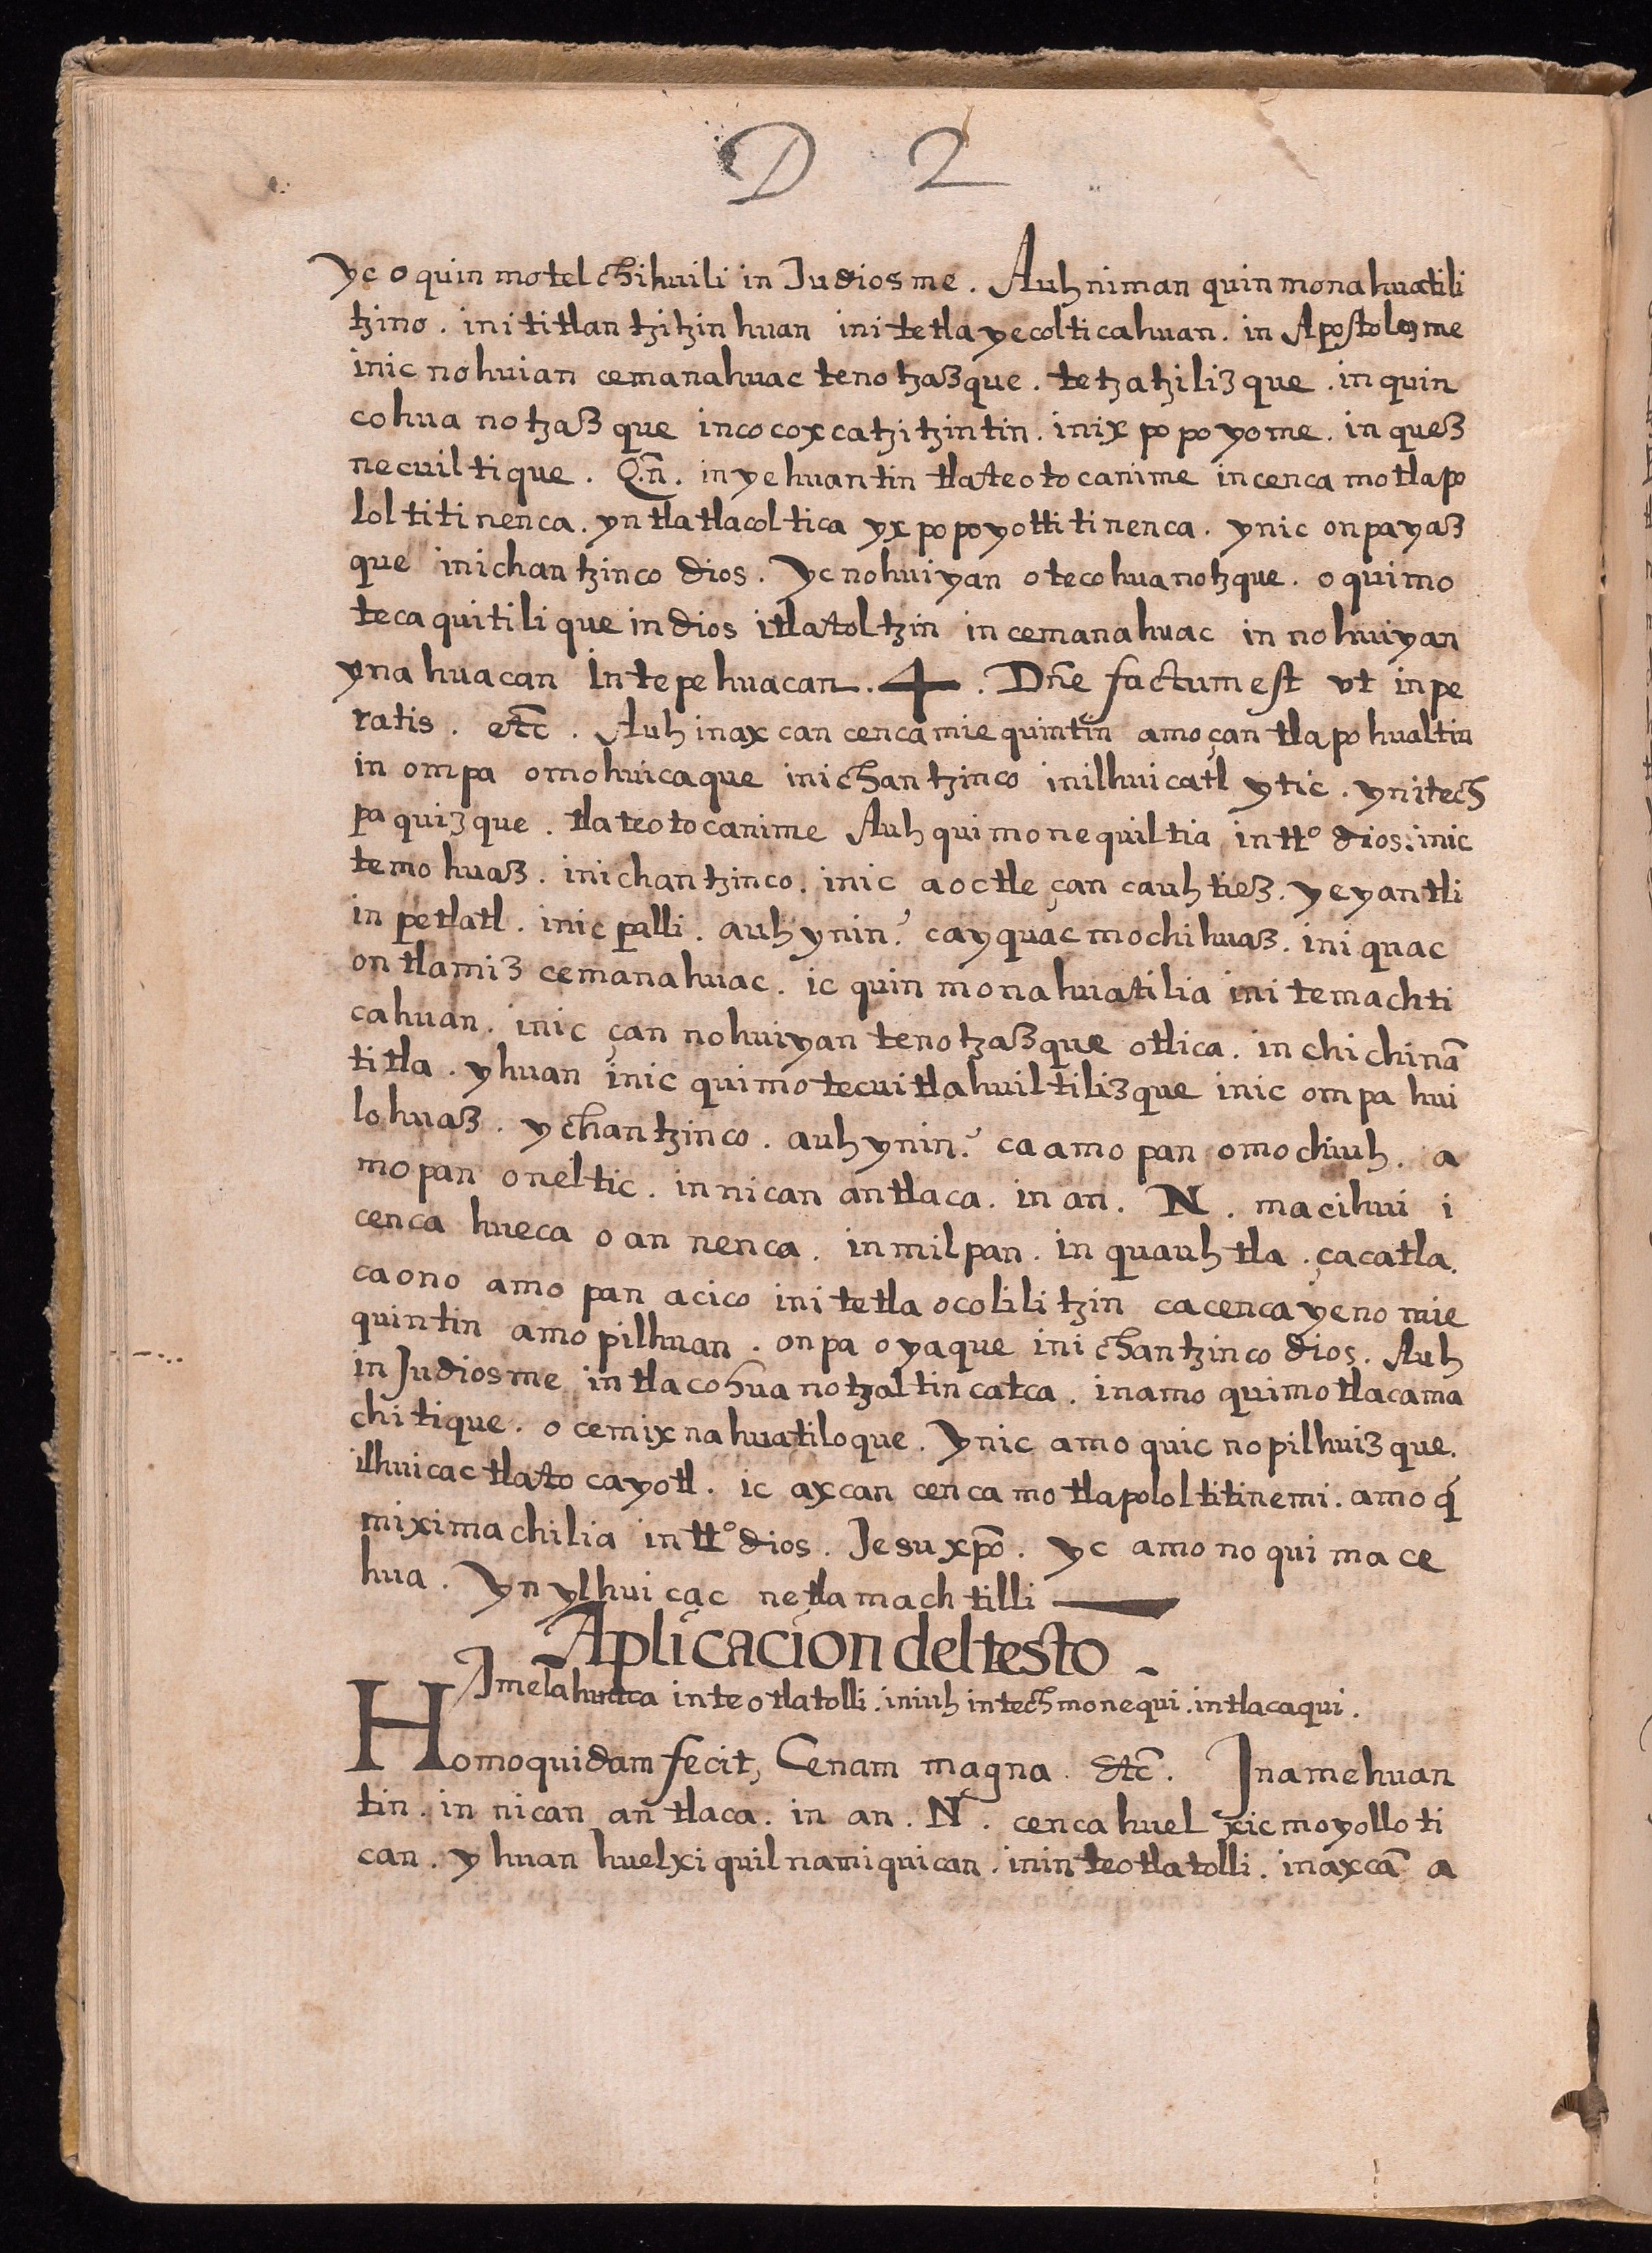 D 2
yc o quin motel chihuili in Judiosme. Auh niman quin monahuatili
tzino. in ititlantzitzinhuan in itetlayecolticahuan. in Apostolesme
inic nohuian cemanahuac tenotzazque. tetzatzilizque. in quin
cohuanotzazque in cocoxcatzitzintin. in ixpopoyome. in quez
necuiltique. Q.n̄. in yehuantin tlateotocanime in cenca motlapo
loltitinenca. yn tlatlacoltica yxpopoyottitinenca. ynic onpa yaz
que in ichantzinco dios. Yc nohuiyan otecohuanotzque. o quimo
tecaquitilique in dios itlatoltzin in cemanahuac in nohuiyan
ynahuacan In tepehuacan. 4. Dñe factum est ut inpe
ratis. etc̄. Auh in axcan cenca miequintin amo çan tlapohualtin
in ompa omohuicaque in ichantzinco in ilhuicatl ytic. yn itech
pa quizque. tlateotocanime Auh quimonequiltia in tt.º dios: inic
temohuaz. in ichantzinco. inic aoctle çan cauhtiez. yeyantli
in petlatl. in icpalli. auh ynin? ca yquac mochihuaz. in iquac
on tlamiz cemanahuac. ic quin monahuatilia in itemachti
cahuan. inic çan nohuiyan tenotzazque otlica. in chichinā
titla. yhuan inic quimotecuitlahuiltilizque inic ompa hui
lohuaz. ychantzinco. auh ynin? ca amopan omochiuh. a
mopan oneltic. in nican antlaca. in an. N. macihui i
cenca hueca oannenca. in milpan. in quauhtla. çacatla.
ca ono amopan acico in itetlaocolilitzin ca cenca yeno mie
quintin amopilhuan. onpa oyaque in ichantzinco dios. Auh
in Judiosme in tlacohuanotzaltin catca. in amo quimotlacama
chitique. o cemixnahuatiloque. Ynic amo quicnopilhuizque.
ilhuicac tlatocayotl. ic axcan cenca motlapololtitinemi. amo q́
miximachilia in tt.º dios. Jesu xp̄o. yc amono quimace
hua. Yn ylhuicac netlamachtilli
Aplicacion del testo
Imelahuaca in teotlatolli. in iuh intech monequi. in tlacaqui.
Homo quidam fecit, Cenam magna. Etc̄. In amehuan
tin. in nican antlaca. in an. N. cenca huel xicmoyolloti
can. yhuan huel xiquilnamiquican. inin teotlatolli. in axcā a